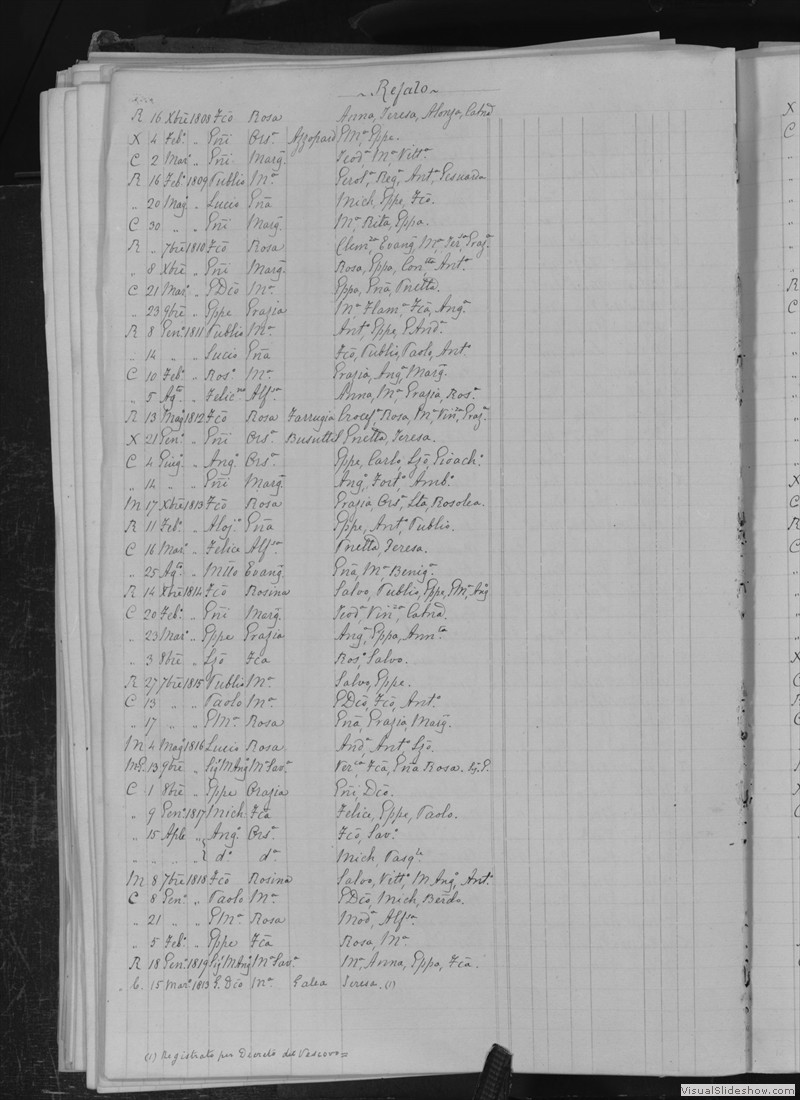 ~ Refalo ~
R 16 Xbre 1808 Fco Rosa Anna, Teresa, Alonza, Catnd
X 4 Feb.o „ Eñi Ors.a Azzopard PMa, Eppe.
C 2 Mar.o „ Eñi Marg. Teod.a Ma, Vitt.a
R 16 Feb.o 1809 Publio Ma Gerot.a Reg.a Ant.a Gesuada
„ 20 Mag.o „ Lucio Eña Mich, Eppe, Fco.
C 30 „ „ Eñi Marg. Ma, Rita, Eppa.
R „ 7bre 1810 Fco Rosa Clem.za, Evang, Ma, Ter.sa, Graz.a
„ 8 Xbre „ Eñi Marg. Rosa, Eppa, Con.tta, Ant.a
C 21 Mar.o „ GDco Ma Eppa, Eña, Pnetta.
„ 23 9bre „ Eppe Grazia Ma, Flam.a, Fca, Ang.a
R 8 Gen.o 1811 Publio Ma Ant.o, Eppe, GAnd.a
„ 14 „ „ Lucio Eña Fco, Publio, Paolo, Ant.o
C 10 Feb.o „ Ros.o Ma Grazia, Ang.a, Marg.
„ 5 Ag.to „ Felic Alf.sa Anna, Ma, Grazia, Ros.a
R 13 Mag.o 1812 Fco Rosa Farrugia Crocef.a, Rosa, Ma, Vin.za, Graz.a
X 21 Gen.o „ Eñi Ors.a Busuttil Pnetta, Teresa.
C 4 Giug.o „ Ang.o Ors.a Eppe, Carlo, Ljo, Gioach.o
„ 14 „ „ Eñi Marg. Ang.o, Fort.o, Amb.o
M 17 Xbre 1813 Fco Rosa Grazia, Ors.a, Lta, Rosolea.
R 11 Feb.o „ Aloj.o Eña Eppe, Ant.o, Publio.
C 16 Mar.o „ Felice Alf.sa Pnetta, Teresa.
„ 25 Ag.to „ Mtto Evang. Eña, Ma, Benig.a
R 14 Xbre 1814 Fco Rosina Salvo, Publio, Eppe, GMa, Ang
C 20 Feb.o „ Eñi Marg. Teod.a, Vin.za, Catnd.
„ 23 Mar.o „ Eppe Grazia Ang.a, Eppa, Ann.ta
„ 3 8bre „ Ljo Fca Ros.o, Salvo.
R 27 7bre 1815 Publio Ma Salvo, Eppe.
C 13 „ „ Paolo Ma GDco, Fco, Ant.o
„ 17 „ „ GMa Rosa Eña, Grazia, Marg.
M 4 Mag.o 1816 Lucio Rosa And.a, Ant.o, Ljo.
MG. 13 9bre „ Sig M Ang Ma Sav.a Ver.ca, Fca, Eña Rosa.
C 1 8bre „ Eppe Grazia Eñi, Dco.
„ 9 Gen.o 1817 Mich Fca Felice, Eppe, Paolo.
„ 15 Aple „ Ang.o Ors.a Fco, Sav.o
„ „ „ „ d.o d.a Mich, Pasq.le
M 8 7bre 1818 Fco Rosina Salvo, Vitt.o, M Ang.o, Ant.o
C 8 Gen.o „ Paolo Ma GDco, Mich, Berdo.
„ 21 „ „ GMa Rosa Mod.a, Alf.sa
„ 5 Feb.o „ Eppe Fca Rosa, Ma.
R 18 Gen.o 1819 Sig M Ang Ma Sav.a Ma, Anna, Eppa, Fca.
C. 15 Mar.o 1813 G. Dco Ma Galea Teresa. (1)
(1) Registrato per Decreto del Vescovo =
VisualSlideshow.com